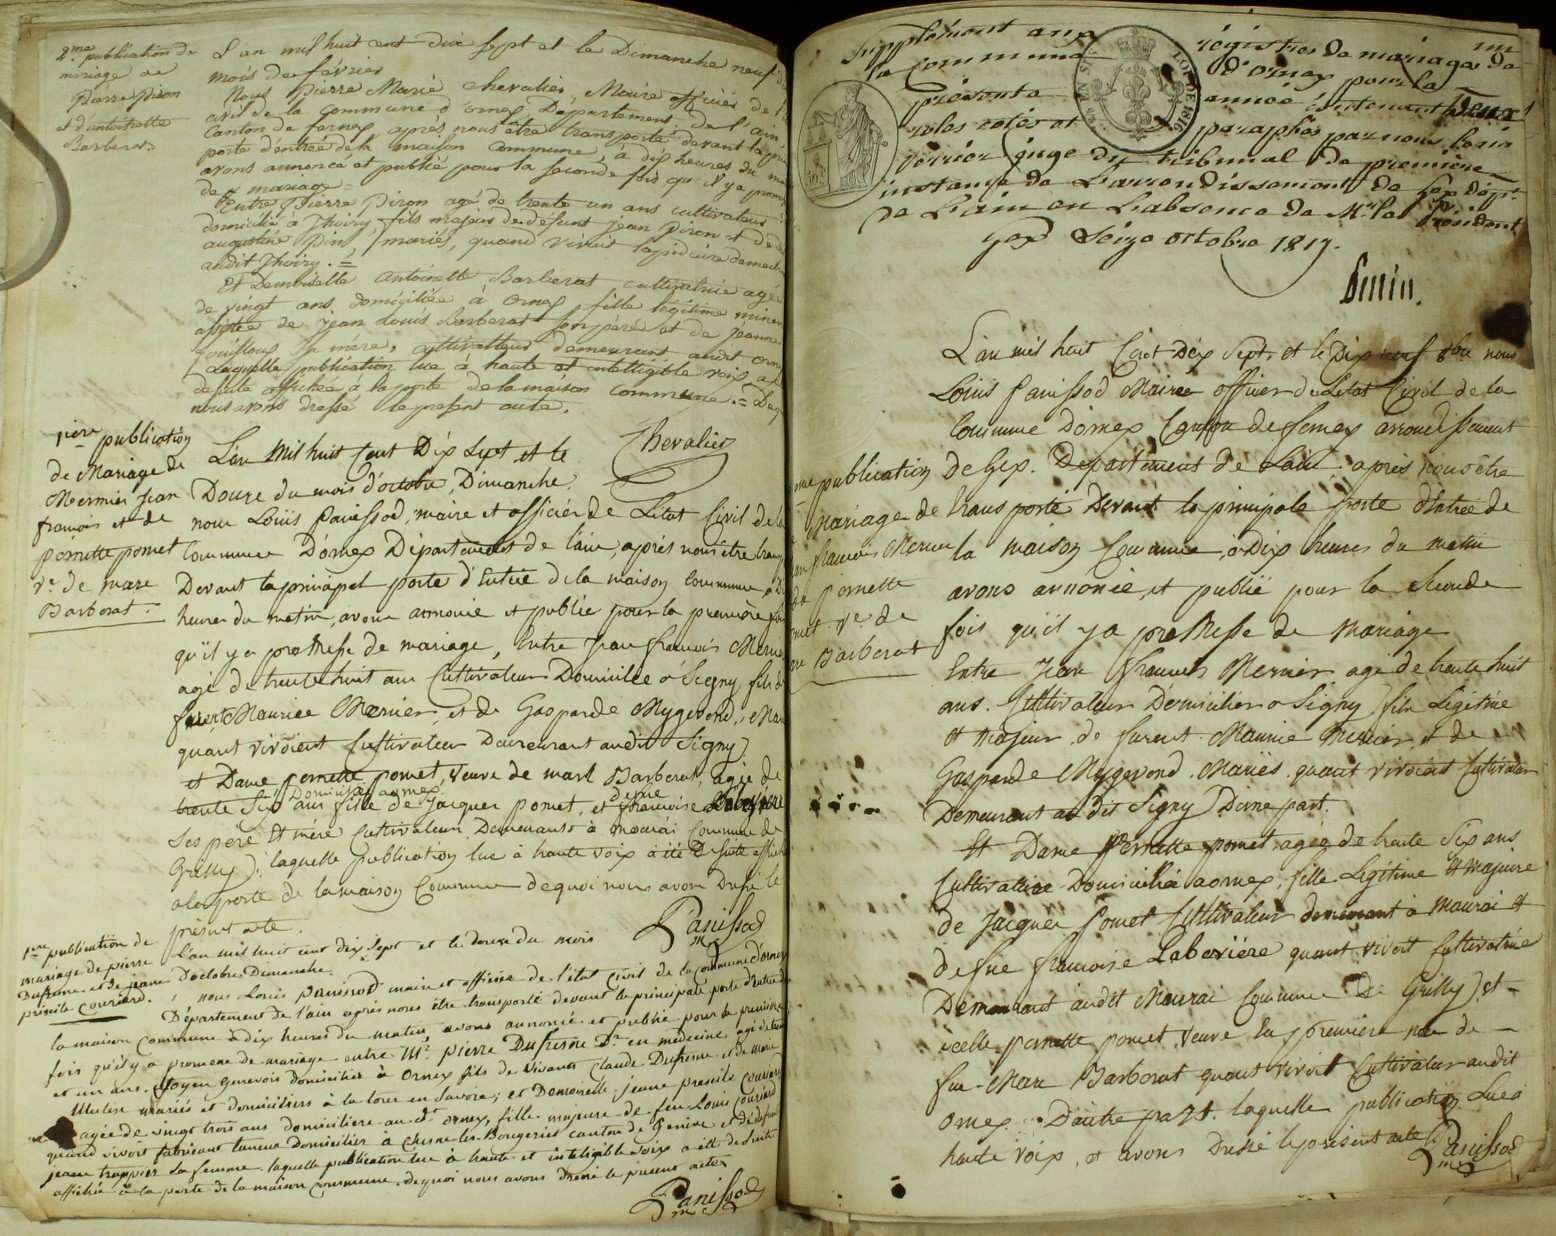 2.me publication de
mariage de
pierre piron
et d'antoinette
Barberat
L'an mil huit cent dix sept et le Dimanche neuf du
mois de février
Nous Pierre Marie Chevalier, Maire officier de l'
état de la Commune d'ornex, Département de l'ain
Canton de fernex, après nous être transporté devant la
porte d'entrée de la maison Commune, à dix heures du
avons annoncé et publié pour la seconde fois qu'il y a prom
de mariage =
Entre Pierre Piron agé de trente un ans cultivateur
domicilié à Thoiry, fils majeur de défunt jean piron et de
augustine Pin, mariés, quand vivait lapidaire demeurant
audit Thoiry. =
Et Demoiselle antoinette Barberat cultivatrice agée
de vingt ans domiciliée à Ornex, fille légitime mineure
de jean Louis Barberat son père et de jeanne
sa mère, cultivateurs demeurant audit ornex
Laquelle publication lue à haute et intelligible voix a
de suite affichée à la porte de la maison commune. = De
nous avons dressé le présent acte.
Chevalier
1ière publication
de Mariage de
Mermier jean
francois et de
pernette pomet
ve. de marc
Barberat.
L'an Mil huit Cent Dix sept et le
Douze du mois d'octobre, Dimanche.
nous Louis Panissod, maire et officier de L'etat Civil de la
Commune D'ornex Département de l'ain, après nous être trans
Devant la principal porte d'Entrée de la maison Commune a
heures du matin, avons annoncé et publié pour la première fois
qu'il y a promesse de mariage, Entre Jean francois Mermier
agé de trente huit ans Cultivateur Domicilié à Segny fils de
furent Maurice Mermier, et de Gasparde Mygevond, Mar
quant vivoient Cultivateur Demeurant audit Signy)
et Dame pernette pomet, Veuve de mark Barberat, agée de
Domiciliée a ornex
trente Six ans fille de Jacques pomet, et françoise Laboriere
Ses père et mère Cultivateurs Demeurants à mourai Commune de
Grilly); laquelle publication lue à haute voix a été De suite affiché
a la porte de la maison Commune de quoi nous avons Dressé le
présent acte.
Panissod
1ere publication de
mariage de pierre
Dufresne et de jeane
presille Couriard.
L'an mil huit cent dix sept et le douze du mois
D'octobre Dimanche.
nous Louis Panissod maire et officier de l'état civil de la commune d'ornex
Département de l'ain après nous être transporté devant la principale porte d'entrée de
la maison Commune à dix heures du matin, avons annoncé et publié pour la première
fois qu'il y a promesse de mariage entre Mr. pierre Dufresne Dr. en medecine agé de trente
et un ans. Citoyen genevois domicilié à Ornex fils de vivants Claude Dufresne et de Marie
mariés et domiciliés à la tour en savoie; et Demoiselle Jeane presile Couriard
agée de vingt trois ans domiciliere au dt. ornex, fille majeure de feu Louis Couriard
quand vivoit fabricant taneur Domicilier à Chesne les Bougeries canton de Genève et de
jeane trappier sa femme. laquelle publication lue à haute et inteligible voix a été de suite
affichée à la porte de la maison Commune. de quoi nous avons dressé le present acte
Panissod
Supplément aux registres de mariages de
la Commune d'Ornex pour la
présente année contenant Deux
roles cotés et paraphés par nous
Perrier juge du tribunal de première
instance de L'arrondissement de Gex dépt.
de L'ain en L'absence de Mr. le Président
Gex Seize octobre 1817.
L'an mil huit Cent Dix Sept, et le Dix neuf 8bre nous
Louis Panissod Maire officier de L'état Civil de la
Commune D'ornex Canton de fernex arrondissement
de Gex. Departement de Lain après nous être
transporté Devant la principale porte d'Entrée de
la maison Commune, a Dix heures du matin
avons annoncé, et publié pour la seconde
fois qu'il y a promesse de Mariage
Entre Jean francois Mermier agé de trente huit
ans. Cultivateur Domicilier a Signy, fils Légitime
et Majeur de furent Maurice Mermier, et de
Gasparde Mygevond. Mariés quant vivoient Cultivateur
Demeurant au dit Signy) D'une part.
Et Dame Pernette pomet agée de trente Six ans
Cultivatrice Domiciliée a ornex, fille Légitime et majeure
de Jacques Pomet Cultivateur demeurant à Mourai et
de feue francoise Laboriere quant vivoit Cultivatrice
Demeurant audit Mourai Commune De Grilly) et
icelle pernette pomet Veuve En premiere noce de
feu Marc Barberat quant vivoit Cultivateur audit
ornex. D'autre part. laquelle publication Lue à
haute voix, et avons Dressé le présent acte
Panissod
publication
Mariage de
francois Mermier
pernette
ve. de
Barberat